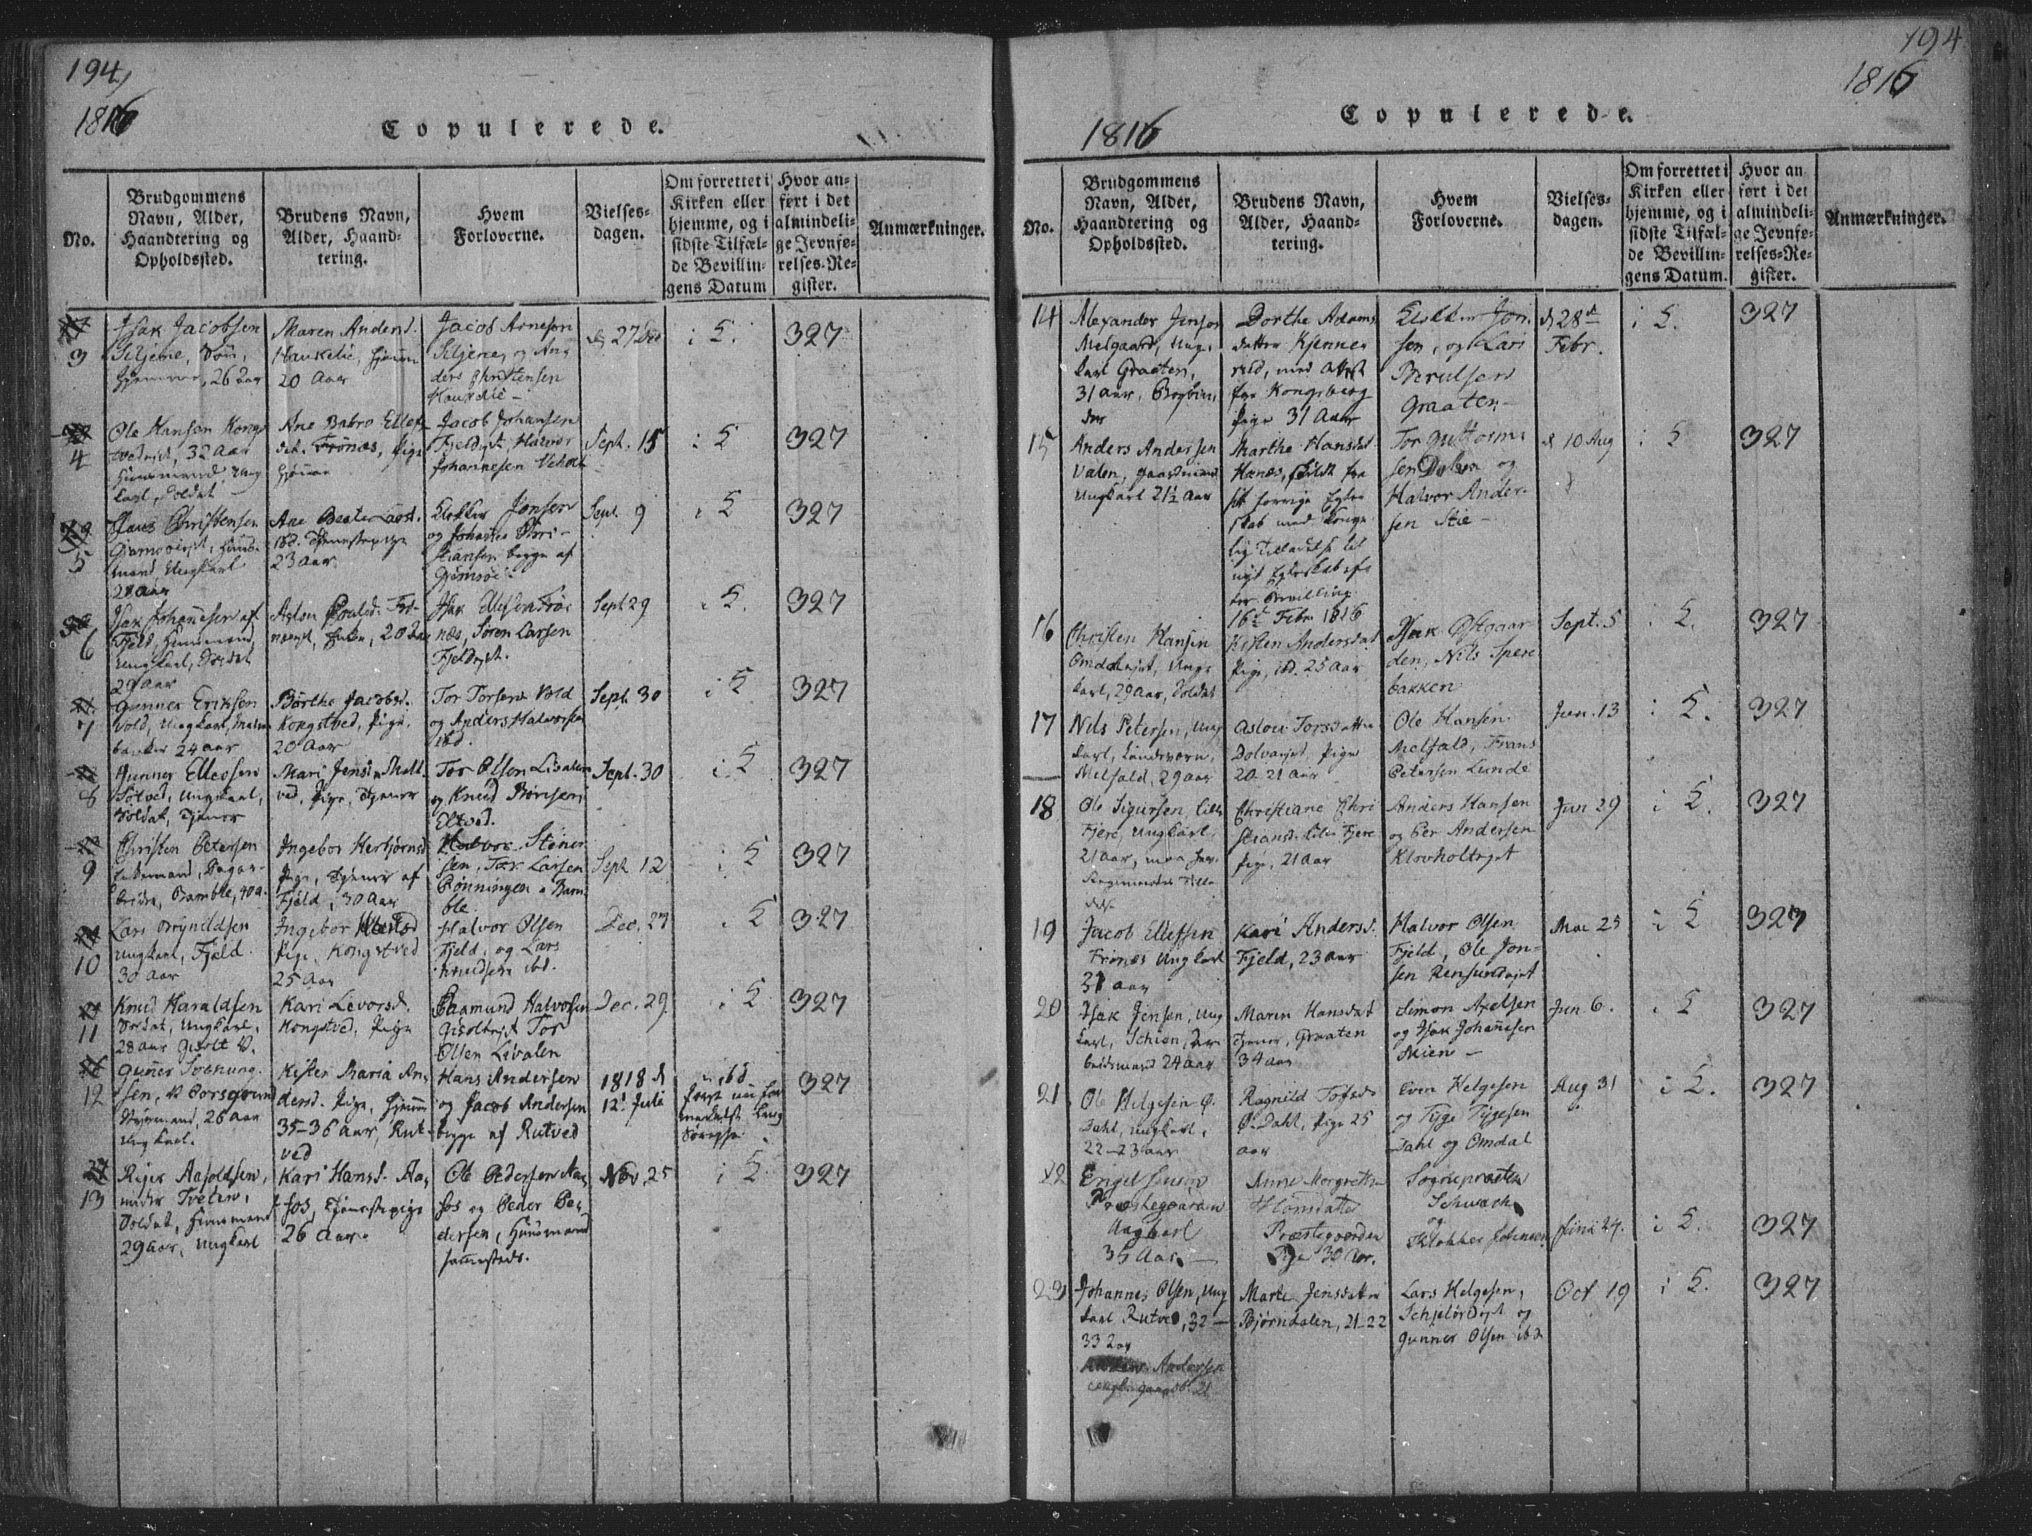 194
1816
Copulerede.
No.
Brudgommens
Navn, Alder,
Haandtering og
Opholdssted.
Brudens Navn,
Alder, Haand-
tering.
Hvem
Forloverne.
Vielses-
dagen.
Om forrettet i
Kirken eller
hjemme, og i
sidste Tilfæl-
de Bevillin-
gens Datum
Hvor an-
ført i det
almindeli-
ge Jevnfø-
relses-Re-
gister.
Anmærkninger.
3
Isak Jacobsen
Siljene,
26 aar
Maren Andersd.
Haukelie,
20 Aar
Jacob Arnesen
Siljene, og An
ders Christensen
Haukelie
27 Dec
i K.
327
4
Ole Hansen
32 Aar
Huusmand, Ung
karl, Soldat
Ane Babro Ellef
dat. Frönæs, Pige
Jacob Johansen
Fjeldejet, Halvor
Johannesen
Sept. 15
i K
327
5
Claus Christensen
Huus-
mand, Ungkarl
28 aar
Ane Beate
ibd. Tjenestepige
23 aar
Klokker Jonsen
og Johannes Chri-
stiansen begge af
Gjømsøe
Sept. 9
i K
327
6
Isak Johannesen af
Fjeld, Huusmand,
Ungkarl, Soldat
29 aar
Aslou Povelsd.
Isak Ellefsen Frö
næs, Sören Larsen
Fjeldejet.
Sept 29
i K.
327
7
Gunner Eriksen
Vold, Ungkarl,
24 aar
Börthe Jacobsd.
Kongstved, Pige,
20 Aar
Tor Torsen Vold
og Anders Halvorsen
ibd.
Sept. 30
i K
327
8
Gunner Ellevsen
Solved, Ungkarl,
Soldat, Tjener
Mari Jensd.
ved, Pige, Tjener
Tor Olsen Livalen
og Knud
Eltved.
Sept. 30
i K
327
9
Christen Petersen
Bamble, 40 a.
Ingebor Herbjörnsd
Pige, Tjener af
Fjeld, 30 Aar
Halvor Stener
sen, Tor Larsen
Rönningen i Bam
ble.
Sept 12
i K
327
10
Lars Brynildsen
Ungkarl, Fjeld.
30 aar
Ingebor
Pige, Kongstved
25 Aar
Halvor Olsen
Fjeld, og Lars
Knudsen ibd.
Dec. 27
i K
327
11
Knud Haraldsen
Soldat, Ungkarl,
28 aar
Kari Levorsd.
Kongstved, Pige
Aamund Halvorsen
Tor
Olsen Livalen
Dec. 29
i K
327
12
Gunner
sen, Porsgrund
26 aar
Ungkarl.
Kisten Maria An
dersd. Pige,
35-36 aar, Rut-
ved
Hans Andersen
og Jacob Andersen
begge af Rutved
1818 d
12. Julii
327
13
Reier Aasoldsen,
under Tveten,
Soldat, Huusmand
29 aar, Ungkarl
Kari Hansd. Aa-
fos, Tjenestepige
26 aar.
Ole Pedersen Aa
fos og Peder Pe
dersen, Huusmand
sammesteds.
Nov. 25
i K
327
194
1816
1816
Copulerede.
No.
Brudgommens
Navn, Alder,
Haandtering og
Opholdssted.
Brudens Navn,
Alder, Haand-
tering.
Hvem
Forloverne.
Vielses-
dagen.
Om forrettet i
Kirken eller
hjemme, og i
sidste Tilfæl-
de Bevillin-
gens Datum.
Hvor an
ført i det
almindeli-
ge Jevnfø-
relses-Re-
gister.
Anmærkninger.
14
Alexander Jensen
Melgaard, Ung-
karl Graaten,
31 aar,
Dorthe Adams
datter Kjenne
rud, med Attest
fra Kongsberg
Pige 31 Aar
Klokker Jon
sen, og Lars
Graaten
d 28de
Febr.
i K.
327
15
Anders Andersen
Valen, Gaardmand
Ungkarl 21½ Aar
Marthe Hansdat
Hanes, skildt fra
sit forrige Egte
skab med Konge
lig Tilladelse til
nyt Egteskab ef
ter Bevilling
16de Febr 1816
Tor Guttorm
sen Dolva og
Halvor Ander-
sen Stie
d 10 Aug
i K
327
16
Christen Hansen
Omdalsejet, Ung-
karl, 29 aar, Soldat
Kisten Andersdat
Pige, ibd. 25 aar
Isak Ostgaar
den, Nils Spere
bakken
Sept. 5
i K.
327
17
Nils Petersen, Ung
karl, Landværn,
Melfald, 29 aar
Aslou Torsdatter
Dolvaejet, Pige
20-21 aar
Ole Hansen
Melfald, Frans
Petersen Lunde
Jun. 13
i K.
327
18
Ole Sigursen, Lille
Fjære, Ungkarl,
21 aar,
Christiane Chri
stiansd. Lille Fjære
Pige, 21 aar
Anders Hansen
og Per Andersen
Klovholtejet
Jun 29
i K.
327
19
Jacob Ellefsen
Frönæs Ungkarl
31 aar
Kari Andersd.
Fjeld, 23 aar
Halvor Olsen
Fjeld, Ole Jon-
sen Rensundejet
Mar 25
i K
327
20
Isak Jensen, Ung
karl, Schien, Ar
beidsmand 24 aar
Maren Hansdat
Tjener, Graaten
34 aar
Simon Axelsen
og Isak Johannesen
Skien
Jun 6.
i K
327
21
Ole Helgesen Ö.
Dahl, Ungkarl,
22-23 aar
Ragnild Tofsd
Ö. Dahl, Pige 25
aar
Even Helgesen
og Tyge Tygesen
Dahl og Omdal
Aug 31
i K.
327
22
Engel Jensen
Præstegaarden
Ungkarl
35 Aar
Anne Margrethe
Præstegaarden
Pige 30 Aar.
Sognepræsten
Schwach
og
Klokker Johnsen
Juni 24.
i K.
327
23
Johannes Olsen, Ung
karl Rutved, 32-
33 aar
Marte Jensdatter
Björndalen, 21-22
Lars Helgesen,
og
Gunner Olsen ibd
Oct 19
i K.
327
Andersen
21